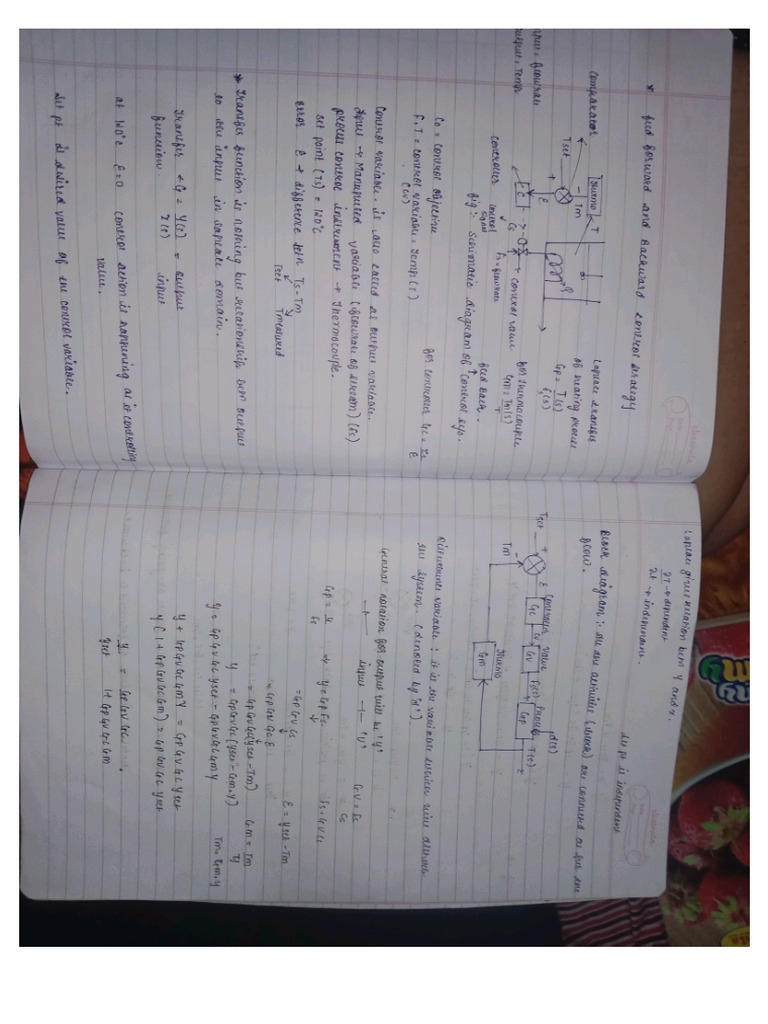 * feed forward and Backward control strategy
Comparator
Thermo
T
Tm
Tset
+
-
E
C
Controller
control signal
Cs
Fs = flowrate
→ control valve
Laplace transfer
of heating process
Gp = T(s)
fi(s)
for thermocouple
Gm = Tm(s)
T
feed Back.
fig:- schematic diagram of control sys.
Co = control objective
F, T = control variable = Temp (T)
(CV)
for controller Gc = Cs
E
Control variable - is also called as output variable.
Input → Manipulated variable (flowrate of stream) (Fs)
process control instrument → Thermocouple.
set point (Ts) = 120°C
error E → difference betn Ts - Tm
Tset Tmeasured
* Transfer function is nothing but relationship betn output
to the input in Laplace domain.
Transfer → G = Y(s) = output
function. X(s) input
at 120°C E=0 control action is happening as is controlling
value.
Set pt is desired value of the control variable.
Laplace gives relation betn Y and x.
2T → dependent
2t → independent.
set pt is independent
Block diagram:- all the activities (block) are connected as per the
flow.
Tset + E Controller valve F(s) process d(s)
Gc Cs Gv Gp T(s)
Tm - Thermo
Gm
Disturbance variable : it is the variable which will disturb
the system. (denoted by 'd')
General notation for output will be 'Y'
input → 'U'
Gv = Fs
Cs
Gp = Y ⇒ Y = Gp Fs
Fs
Fs = Gv Cs
= Gp Gv Cs
= Gp Gv Gc E
E = Yset - Tm
= Gp Gv Gc (Yset - Tm)
Gm = Tm
Y
Y = Gp Gv Gc (Yset - Gm.Y)
Tm = Gm.Y
Y = Gp Gv Gc Yset - Gp Gv Gc Gm Y
Y + Gp Gv Gc Gm Y = Gp Gv Gc Yset
Y (1 + Gp Gv Gc Gm) = Gp Gv Gc Yset
Y = Gp Gv Gc .
Yset 1 + Gp Gv Gc Gm